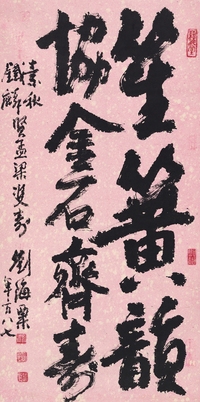 笙簧韻
協金石齊壽
素秋
鐵麟賢孟梁雙壽
劉海粟
年方八七